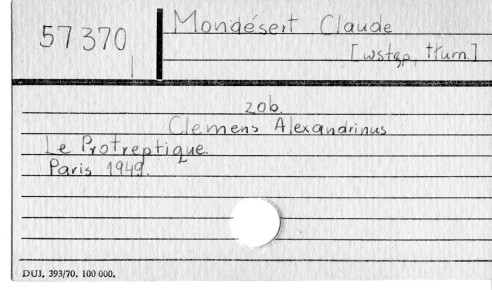 57370
Mondésert Claude
[wstęp, tłum.]
zob.
Clemens Alexandrinus
Le Protreptique.
Paris 1949.
DUJ. 393/70. 100 000.